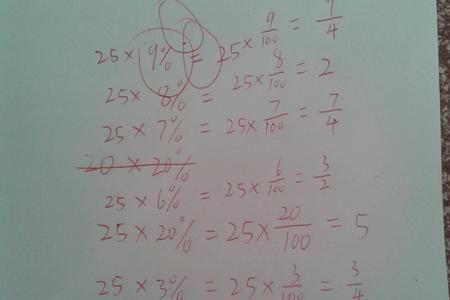 25 × 9% = 25 × 9/100 = 9/4
25 × 8% = 25 × 8/100 = 2
25 × 7% = 25 × 7/100 = 7/4
20 × 20%
25 × 6% = 25 × 6/100 = 3/2
25 × 20% = 25 × 20/100 = 5
25 × 3% = 25 × 3/100 = 3/4